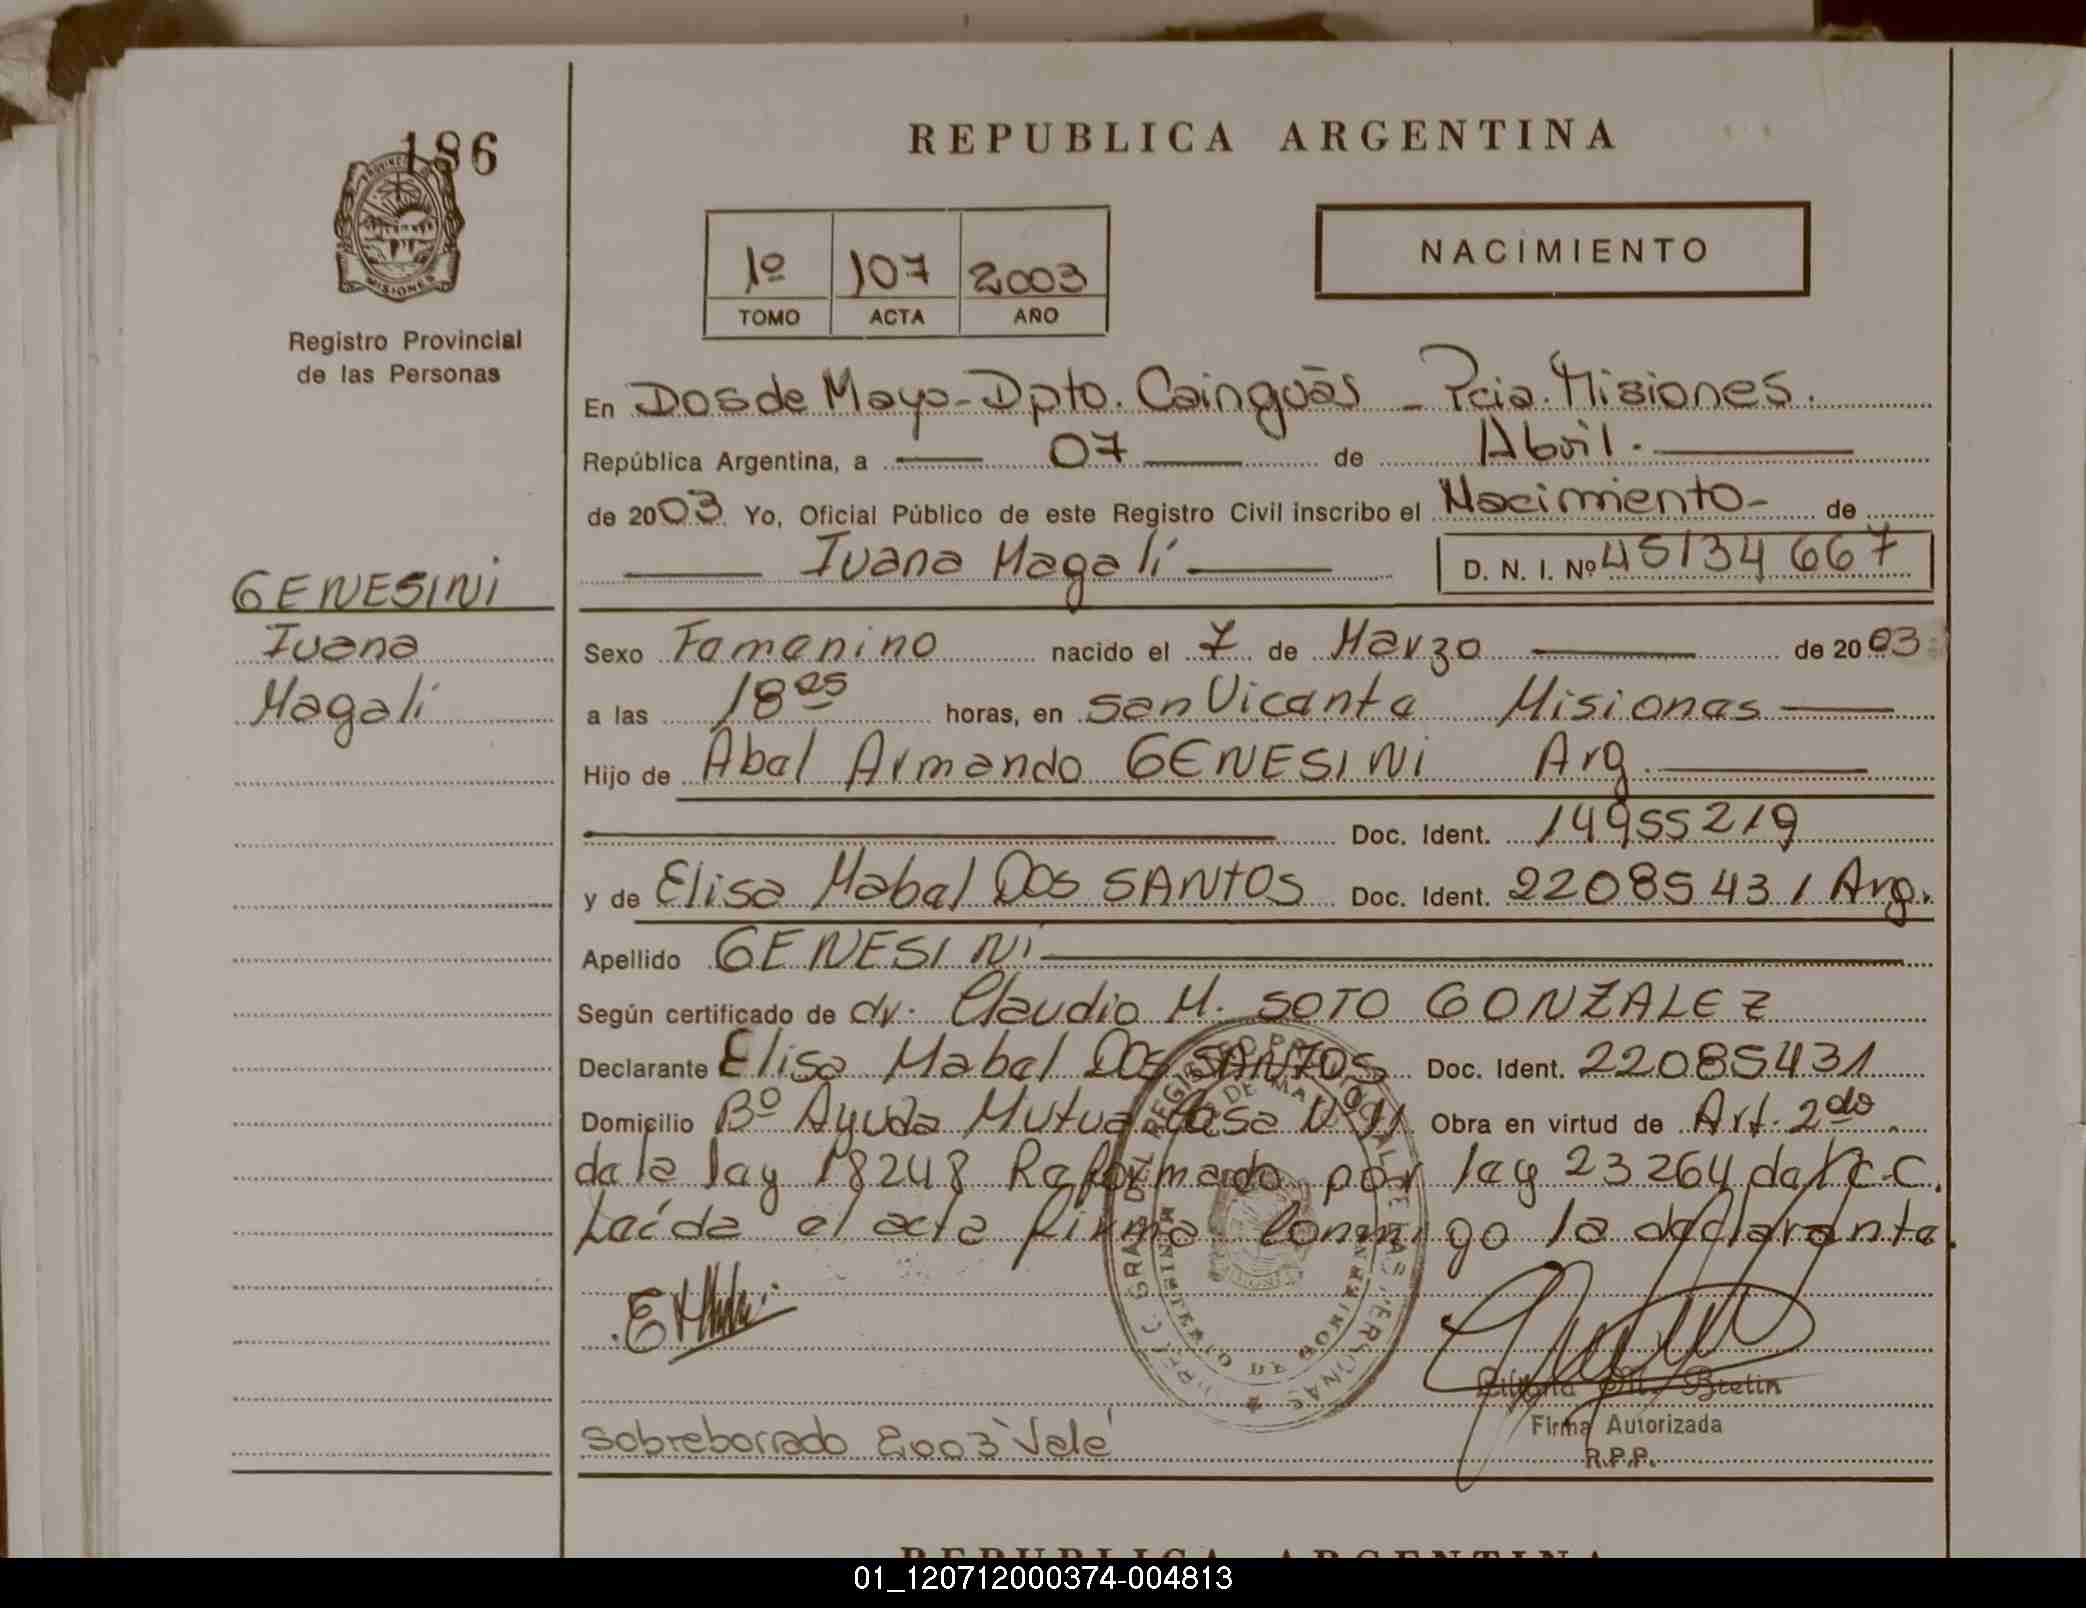 186
REPUBLICA ARGENTINA
PROVINCIA DE
MISIONES
Registro Provincial
de las Personas
1º 107 2003
TOMO ACTA AÑO
NACIMIENTO
En Dos de Mayo - Dpto. Cainguás - Pcia. Misiones.
República Argentina, a 07 de Abril.
de 2003 Yo, Oficial Público de este Registro Civil inscribo el Nacimiento - de
Ivana Magalí D. N. I. Nº 45134667
GENESINI
Ivana
Magalí
Sexo Femenino nacido el 7 de Marzo de 2003
a las 18 25 horas, en San Vicente Misiones
Hijo de Abel Armando GENESINI Arg.
Doc. Ident. 14955219
y de Elisa Mabel DOS SANTOS Doc. Ident. 22085431 Arg.
Apellido GENESINI
Según certificado de dr. Claudio M. SOTO GONZALEZ
Declarante Elisa Mabel DOS SANTOS Doc. Ident. 22085431
Domicilio Bº Ayuda Mutua Casa Nº 11 Obra en virtud de Art. 2do
de la ley 18248 Reformado por ley 23264 del C.C.
Leída el acta firma conmigo la declarante.
DEL REGISTRO PROVINCIAL DE LAS PERSONAS
MINISTERIO DE GOBIERNO
Bretin
Firma Autorizada
R.P.P.
Sobreborrado 2003 Vale
REPUBLICA ARGENTINA
01_120712000374-004813